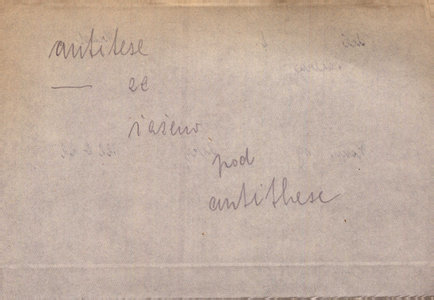 antitese
— ze
řazeno
pod
antithese